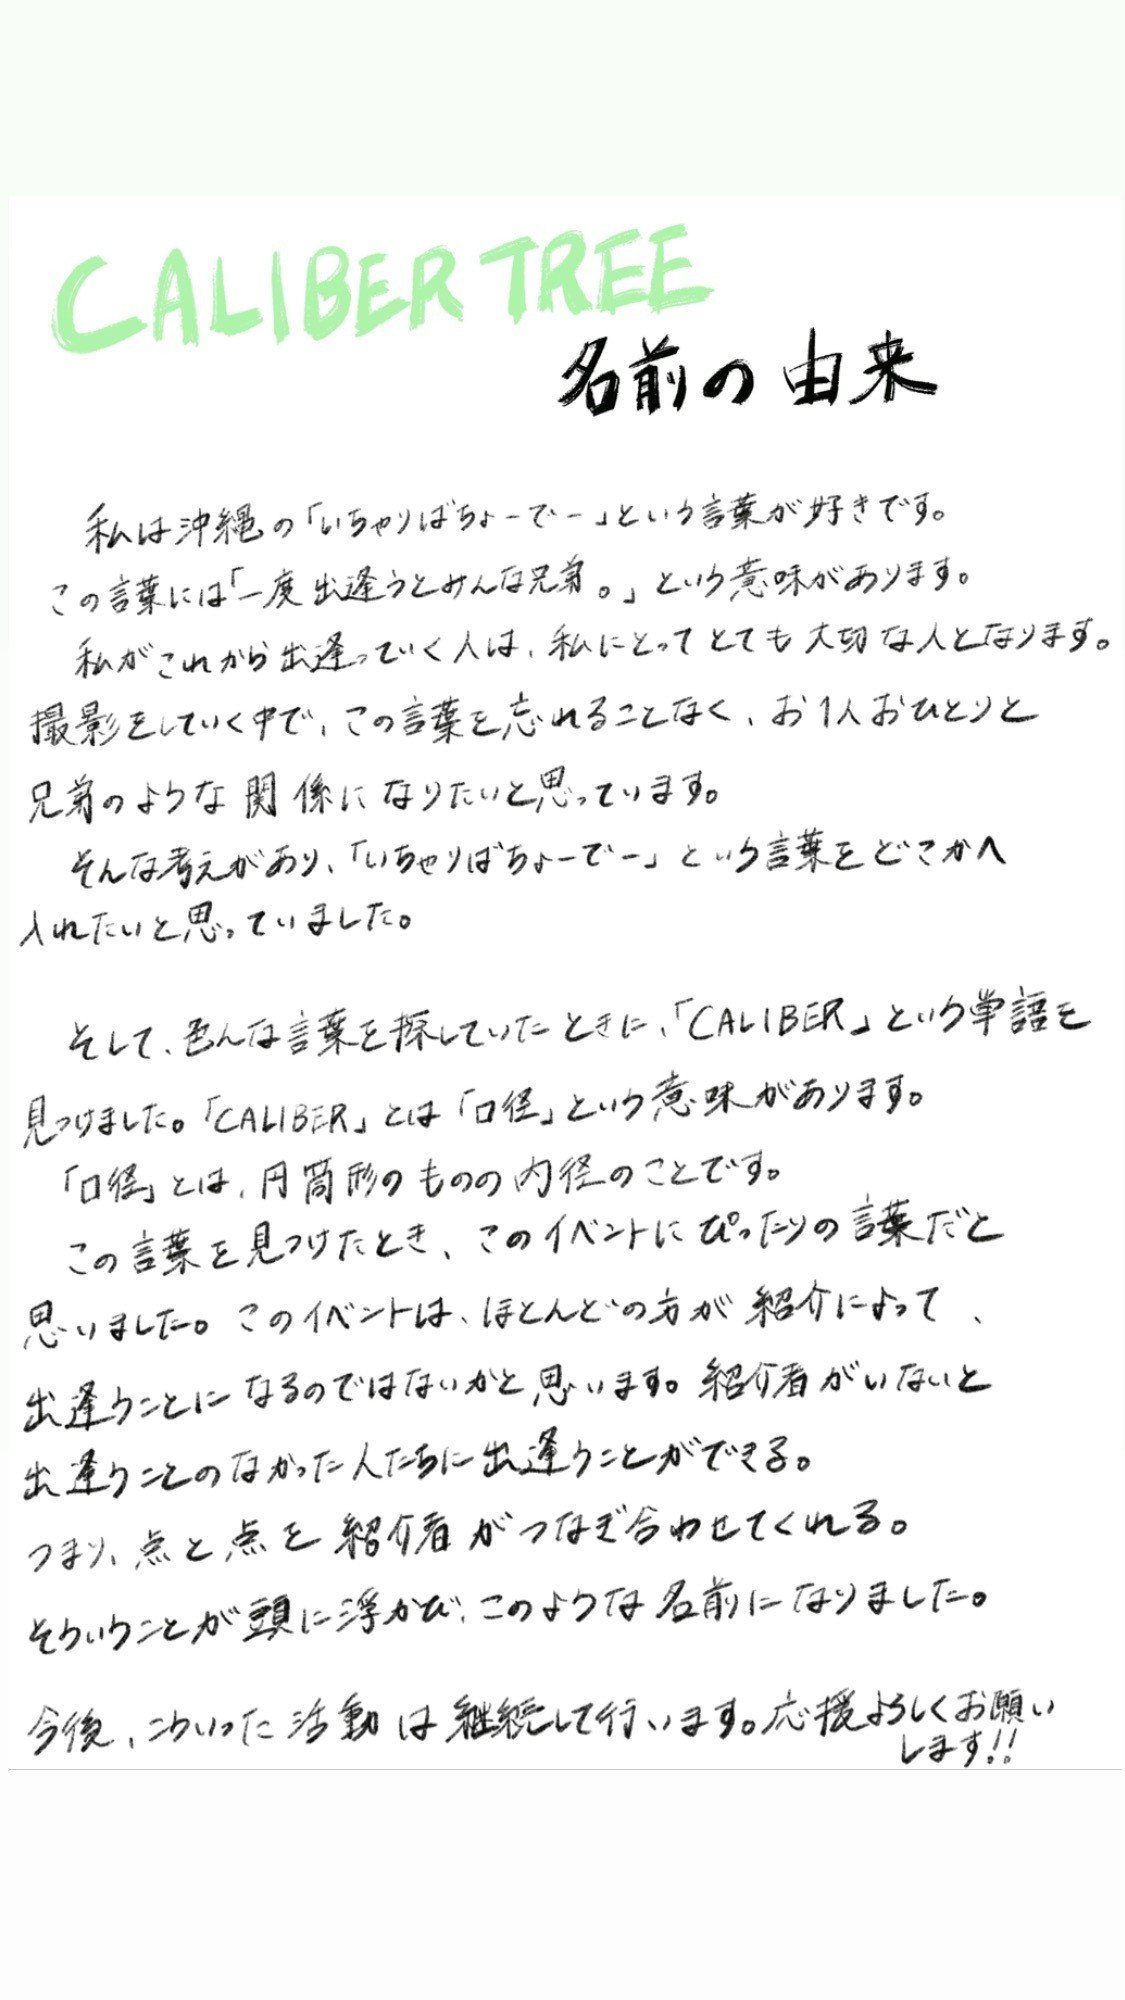 CALIBER TREE
名前の由来
私は沖縄の「いちゃりばちょーでー」という言葉が好きです。
この言葉には「一度出逢うとみんな兄弟。」という意味があります。
私がこれから出逢っていく人は、私にとってとても大切な人となります。
撮影をしていく中で、この言葉を忘れることなく、お1人おひとりと
兄弟のような関係になりたいと思っています。
そんな考えがあり、「いちゃりばちょーでー」という言葉をどこかへ
入れたいと思っていました。
そして、色んな言葉を探していたときに、「CALIBER」という単語を
見つけました。「CALIBER」とは「口径」という意味があります。
「口径」とは、円筒形のものの内径のことです。
この言葉を見つけたとき、このイベントにぴったりの言葉だと
思いました。このイベントは、ほとんどの方が紹介によって、
出逢うことになるのではないかと思います。紹介者がいないと
出逢うことのなかった人たちに出逢うことができる。
つまり、点と点を紹介者がつなぎ合わせてくれる。
そういうことが頭に浮かび、このような名前になりました。
今後、こういった活動は継続して行います。応援よろしくお願い
します!!